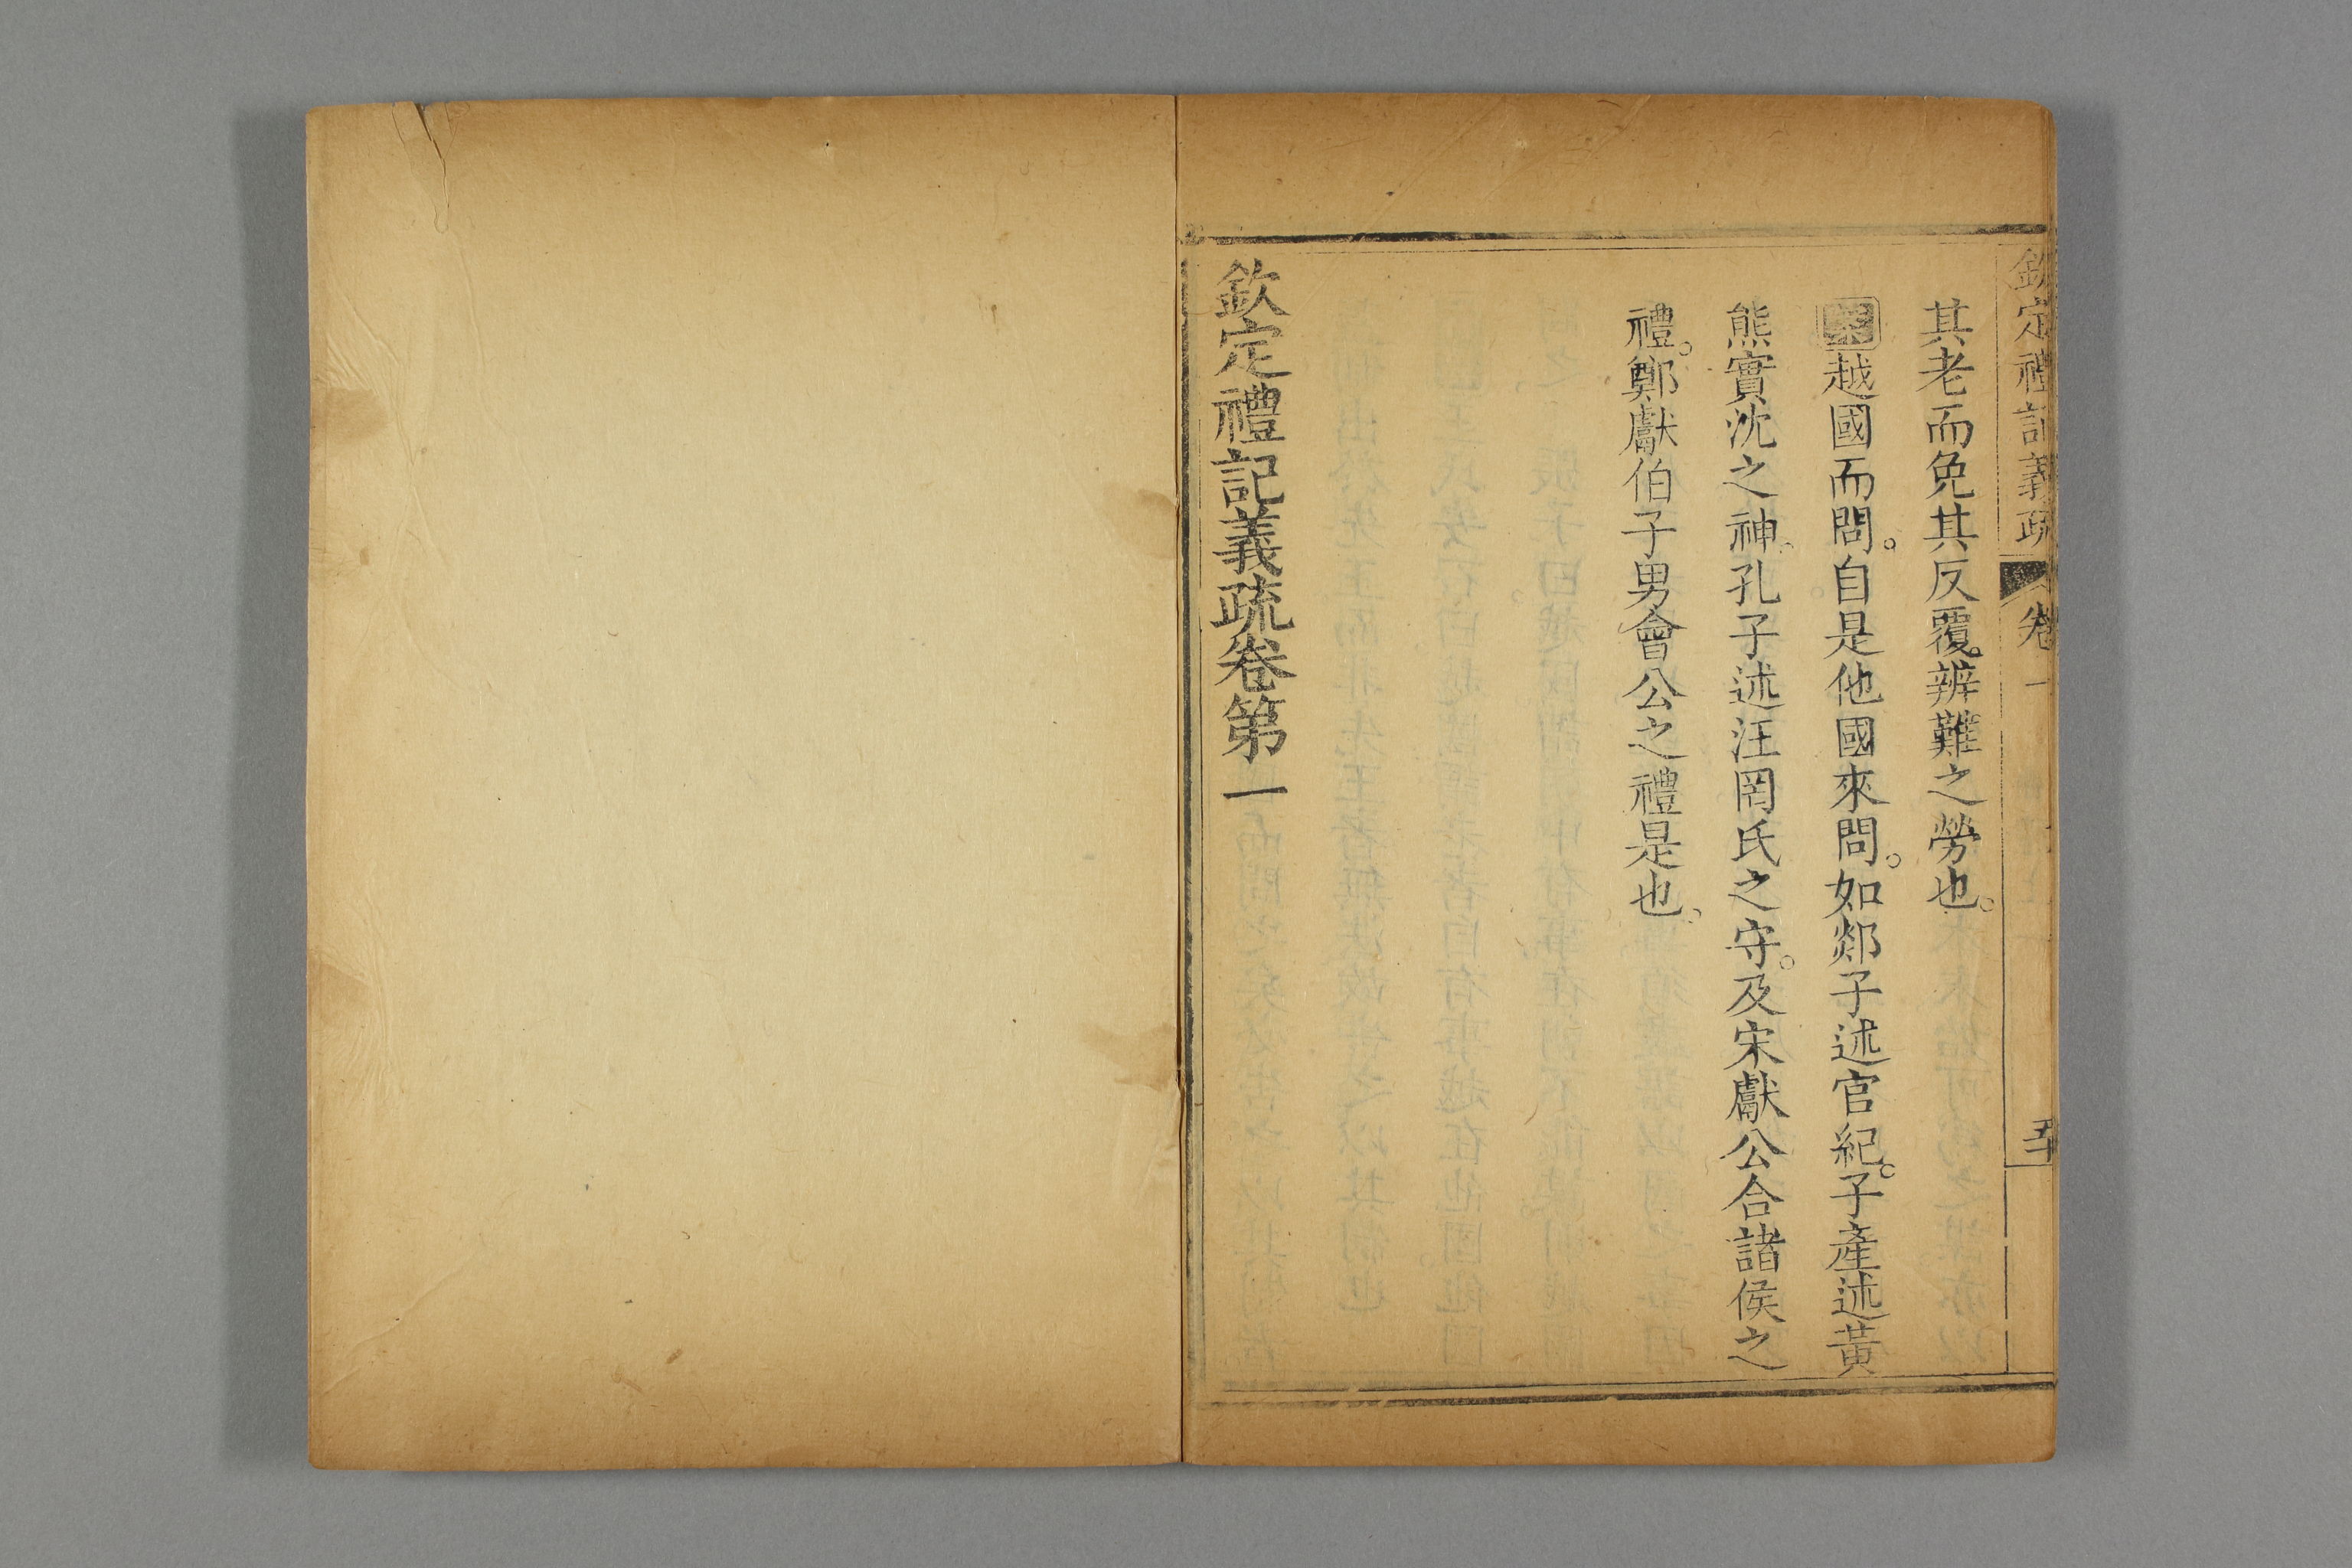 欽定禮記義疏 卷一
其老而免其反覆辨難之勞也。
案越國而問。自是他國來問。如郯子述官紀。子產述黃
熊實沈之神。孔子述汪罔氏之守。及宋獻公合諸侯之
禮。鄭獻伯子男會公之禮是也。
欽定禮記義疏卷第一